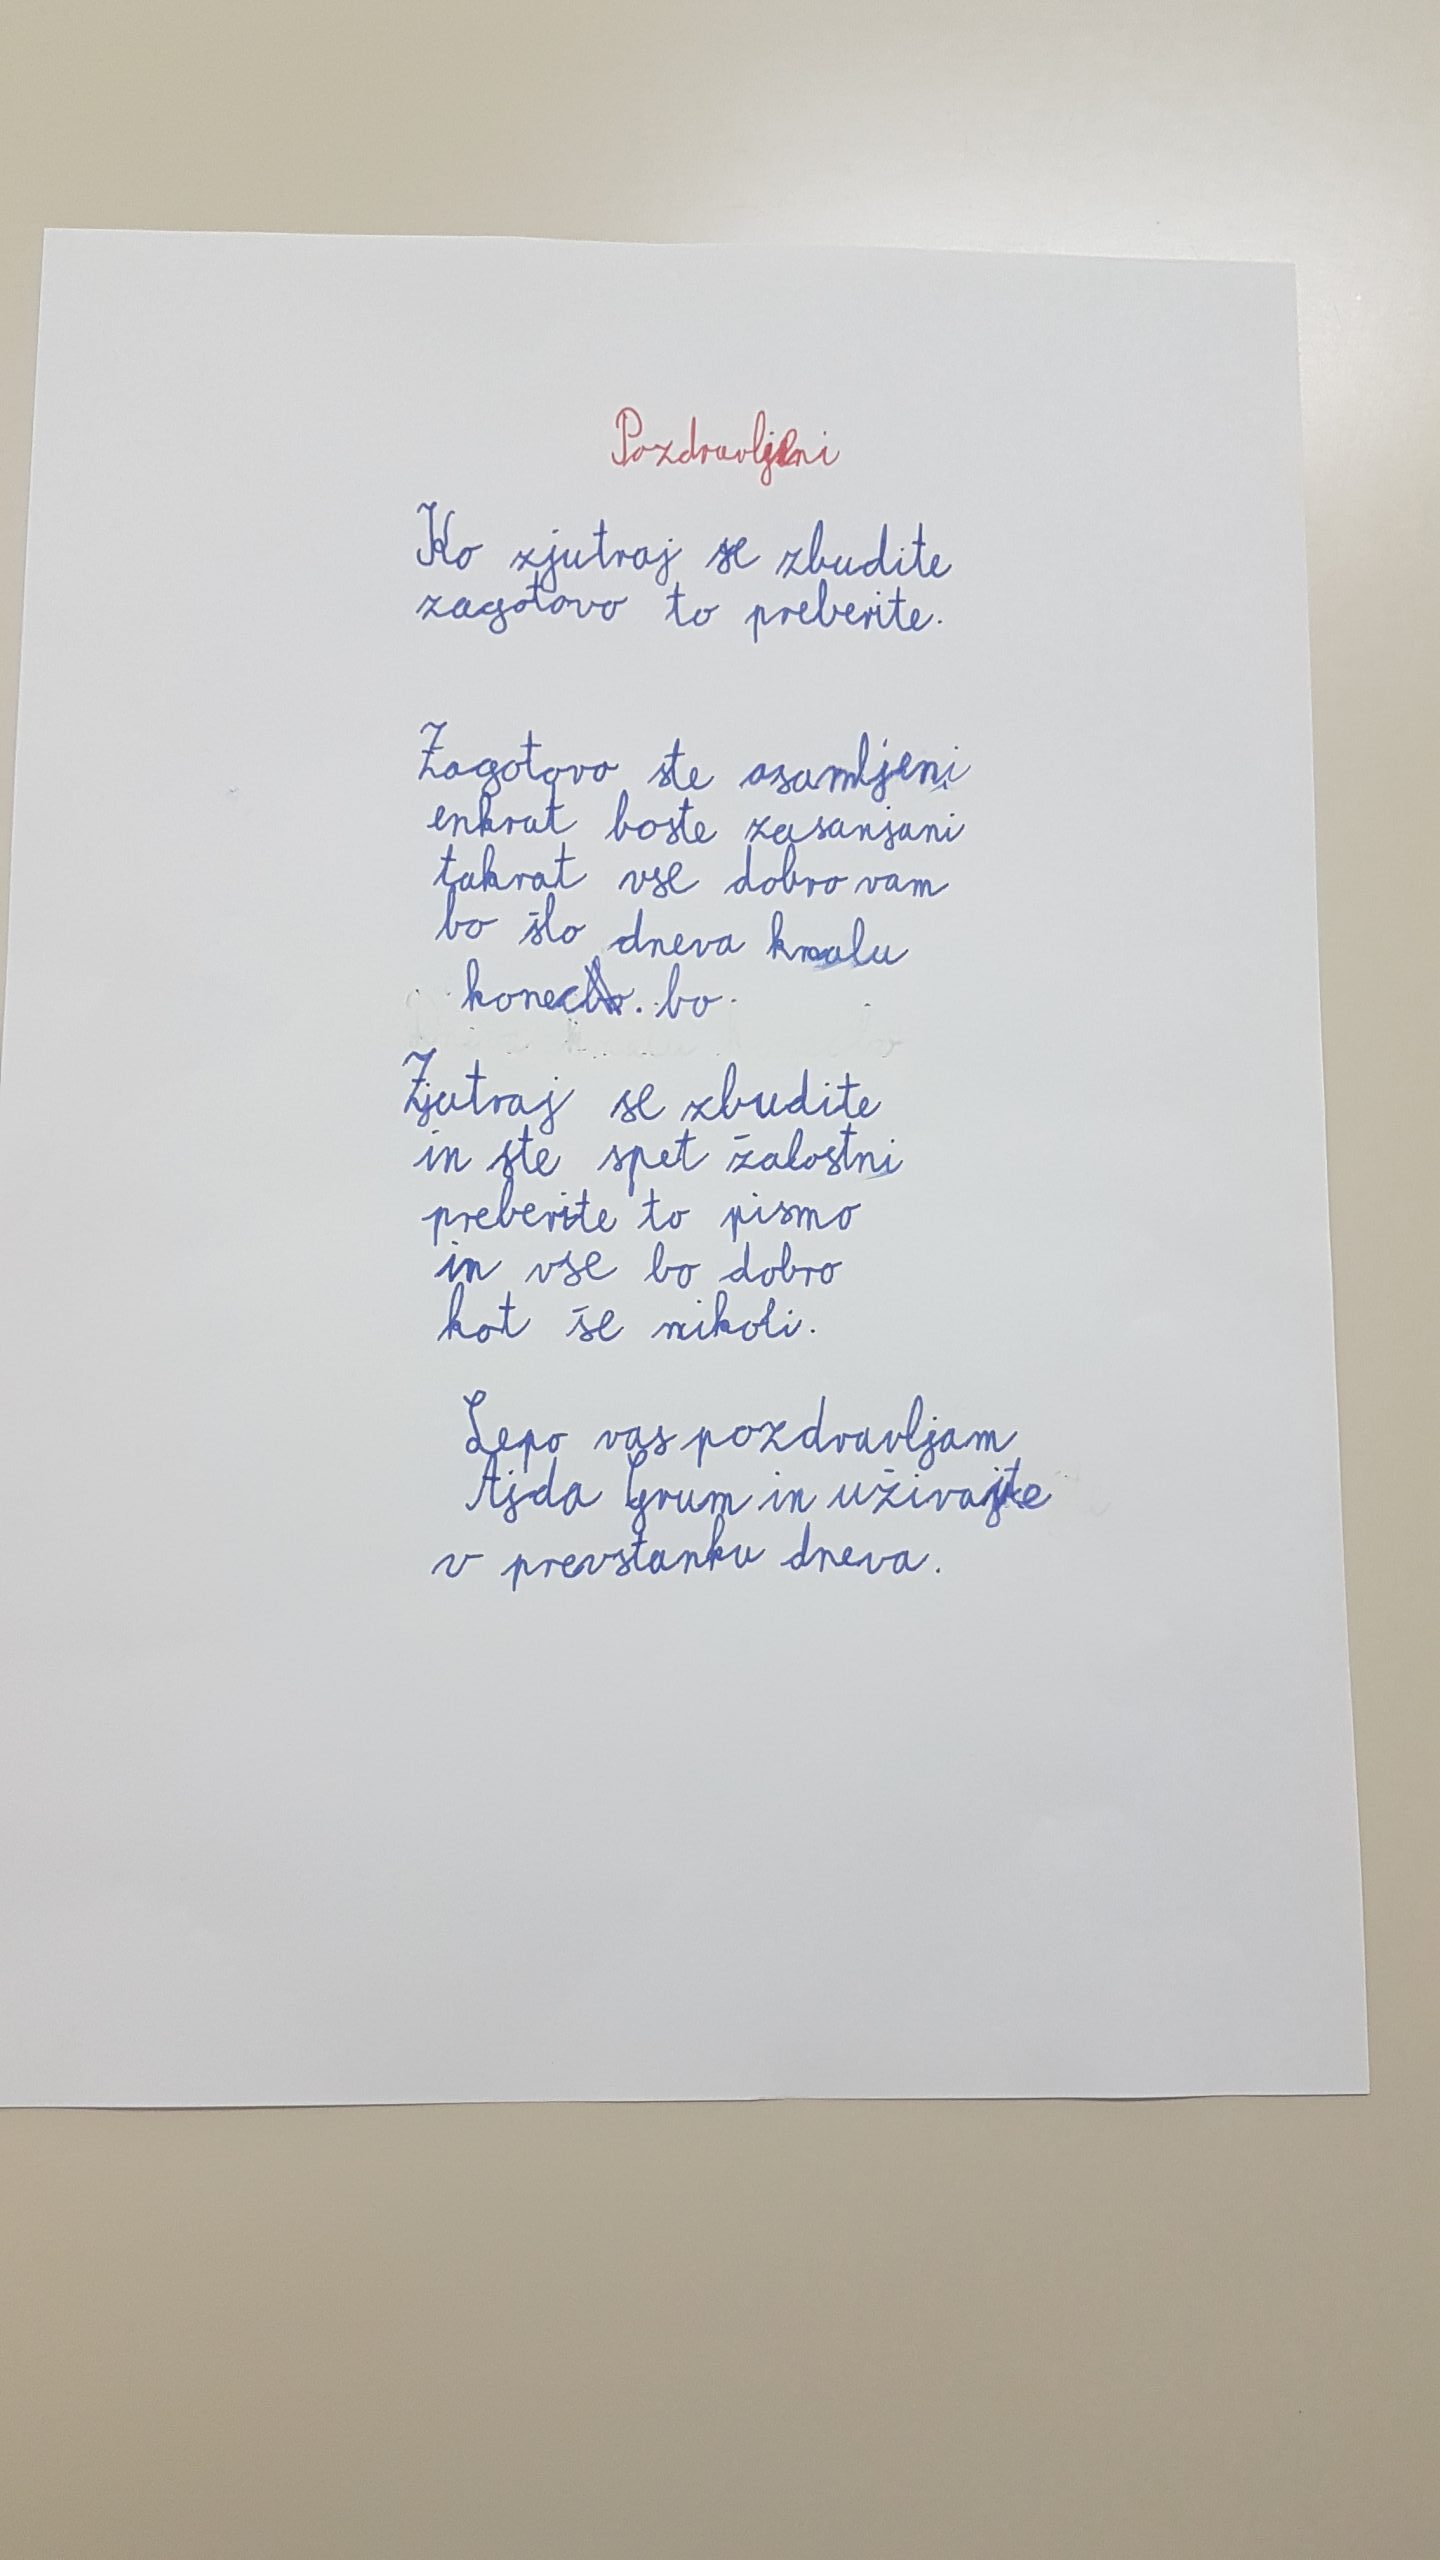 Pozdravljeni
Ko zjutraj se zbudite
zagotovo to preberite.
Zagotovo ste osamljeni
enkrat boste zasanjani
takrat vse dobro vam
bo šlo dneva kmalu
konec. bo.
Zjutraj se zbudite
in ste spet žalostni
preberite to pismo
in vse bo dobro
kot še nikoli.
Lepo vas pozdravljam
Ajda Grum in uživajte
v prevstanku dneva.